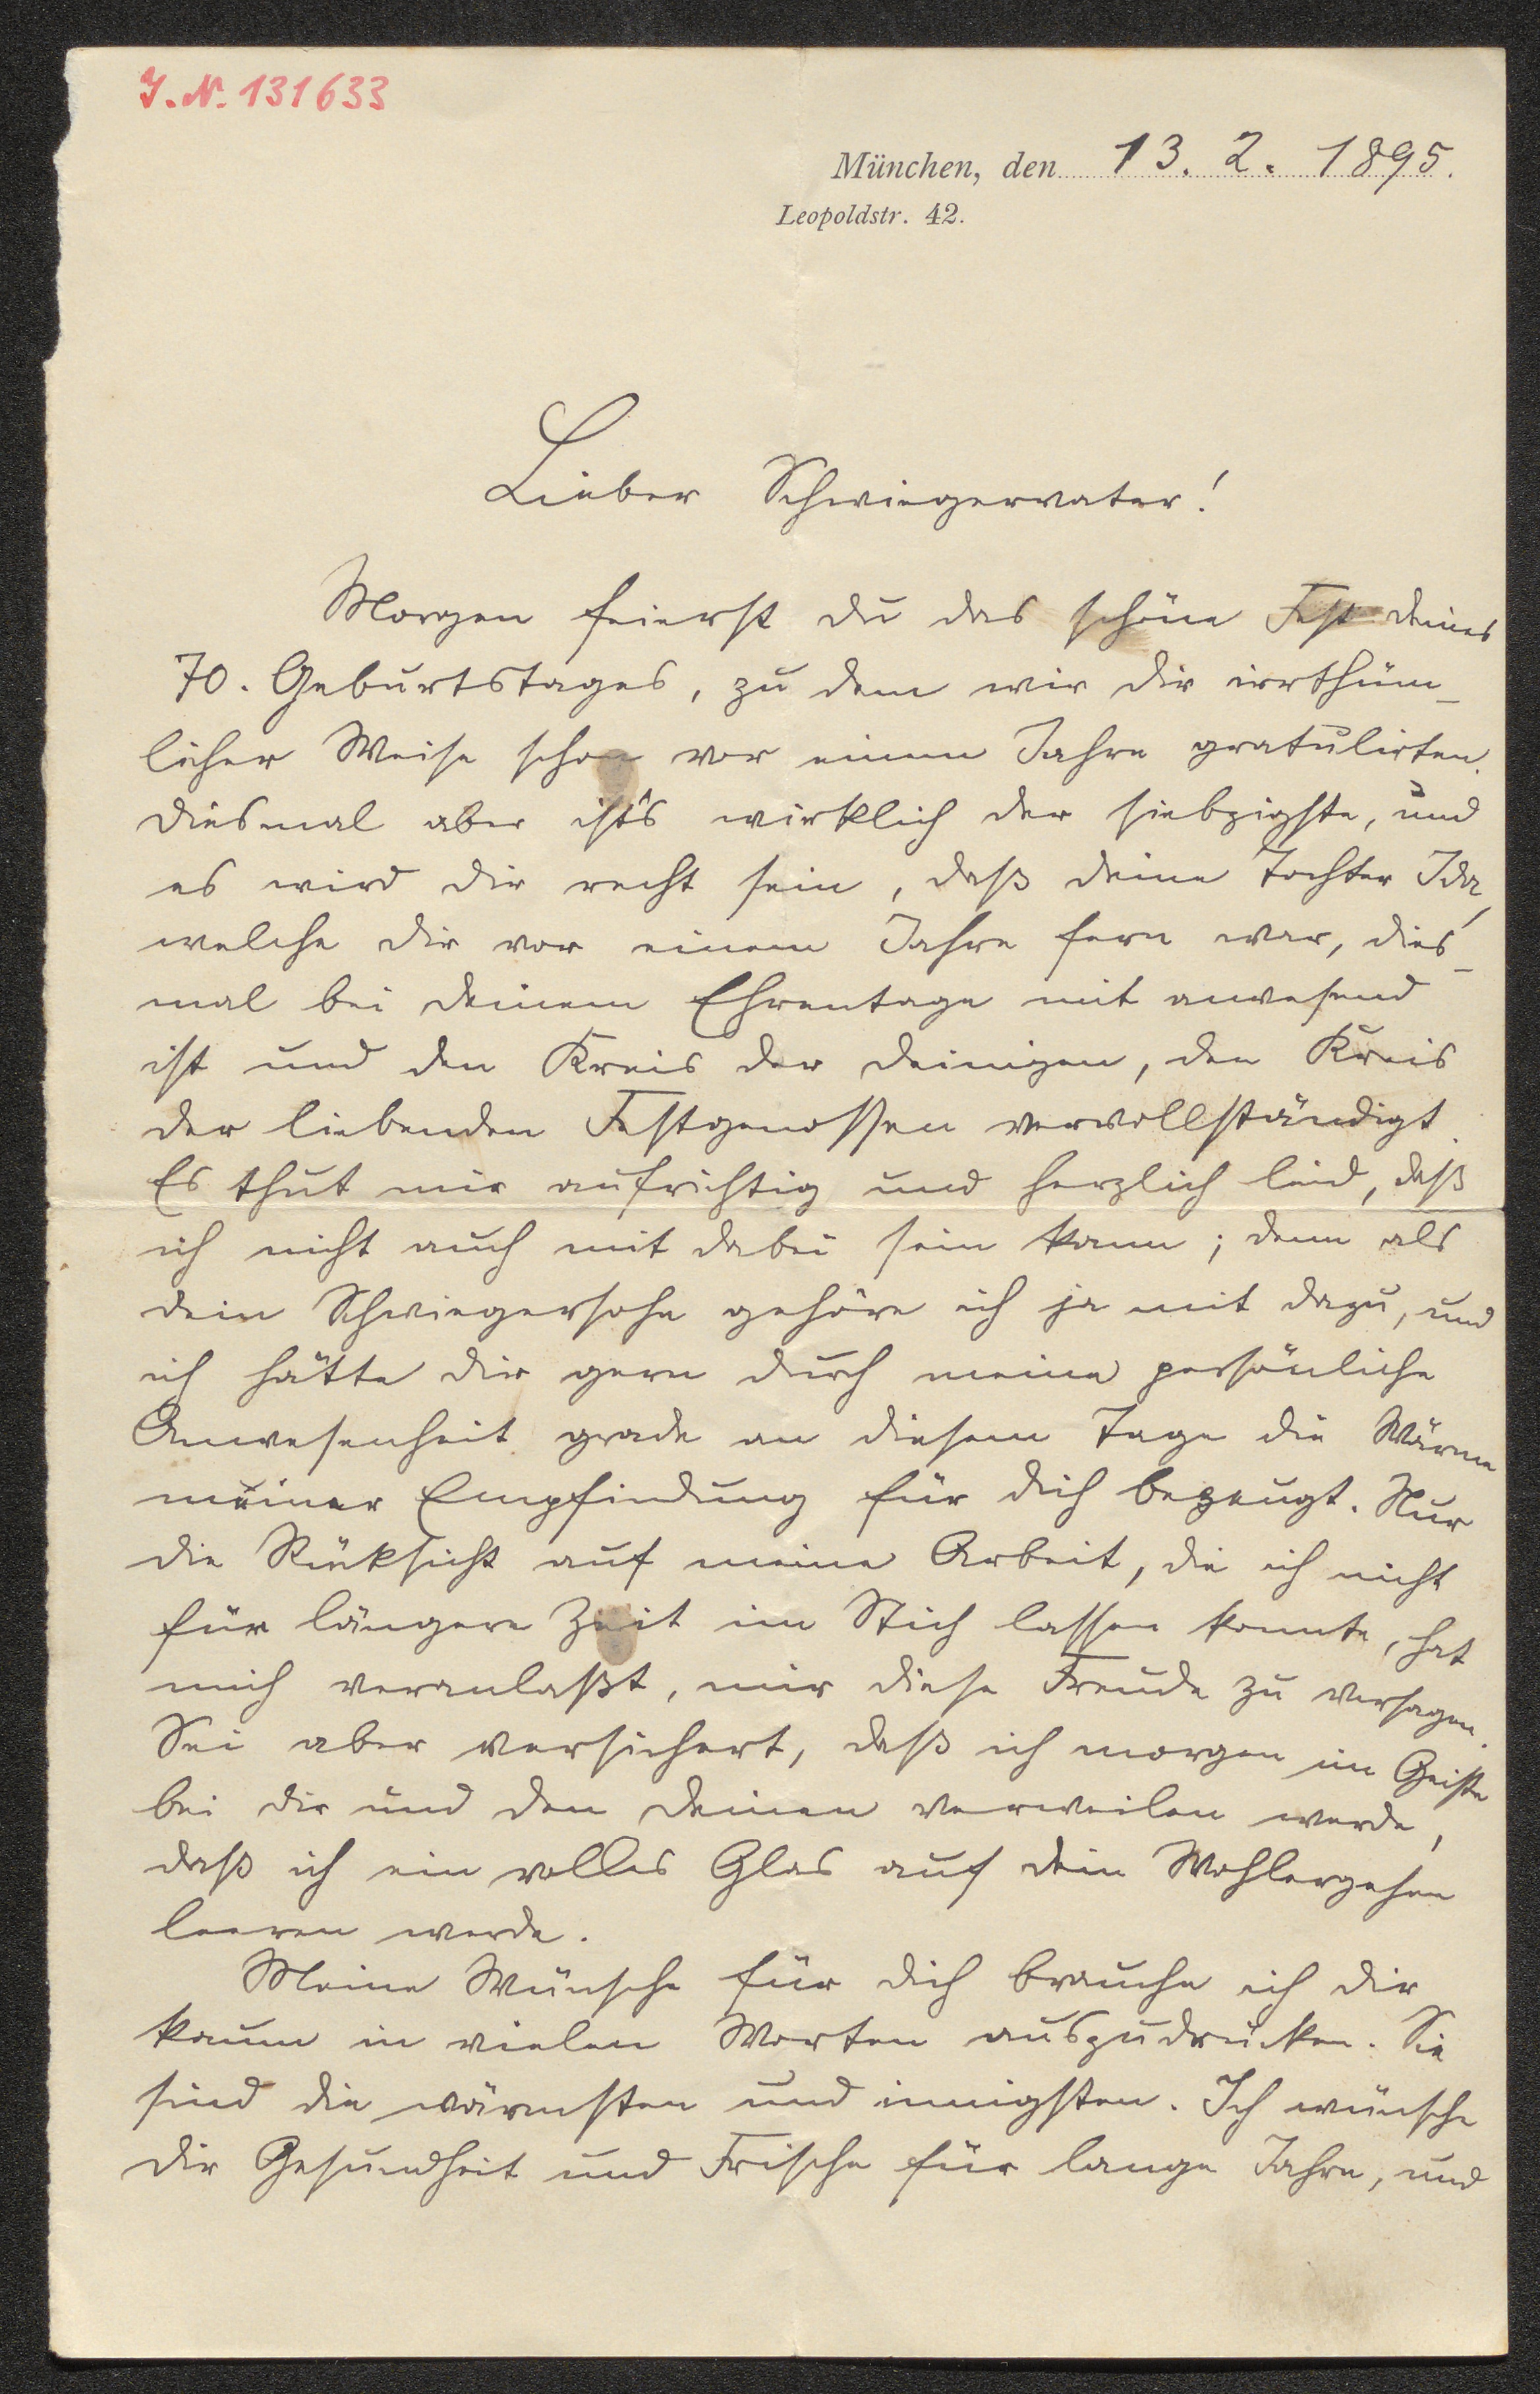 J. N. 131633
München, den 13. 2. 1895.
Leopoldstr. 42.
Lieber Schwiegervater!
Morgen feierst du das schöne Fest deines
70. Geburtstages, zu dem wir dir irrthüm-
licher Weise schon vor einem Jahre gratulirten.
Diesmal aber ist's wirklich der siebzigste, und
es wird dir recht sein, daß deine Tochter Ida,
welche dir vor einem Jahre fern war, dies-
mal bei deinem Ehrentage mit anwesend
ist und den Kreis der deinigen, den Kreis
der liebenden Festgenossen vervollständigt.
Es thut mir aufrichtig und herzlich leid, daß
ich nicht auch mit dabei sein kann; denn als
dein Schwiegersohn gehöre ich ja mit dazu, und
ich hätte dir gern durch meine persönliche
Anwesenheit grade an diesem Tage die Wärme
meiner Empfindung für dich bezeugt. Nur
die Rücksicht auf meine Arbeit, die ich nicht
für längere Zeit im Stich lassen konnte, hat
mich veranlaßt, mir diese Freude zu versagen.
Sei aber versichert, daß ich morgen im Geiste
bei dir und den deinen verweilen werde,
daß ich ein volles Glas auf dein Wohlergehen
leeren werde.
Meine Wünsche für dich brauche ich dir
kaum in vielen Worten auszudrücken. Sie
sind die wärmsten und innigsten. Ich wünsche
dir Gesundheit und Frische für lange Jahre, und